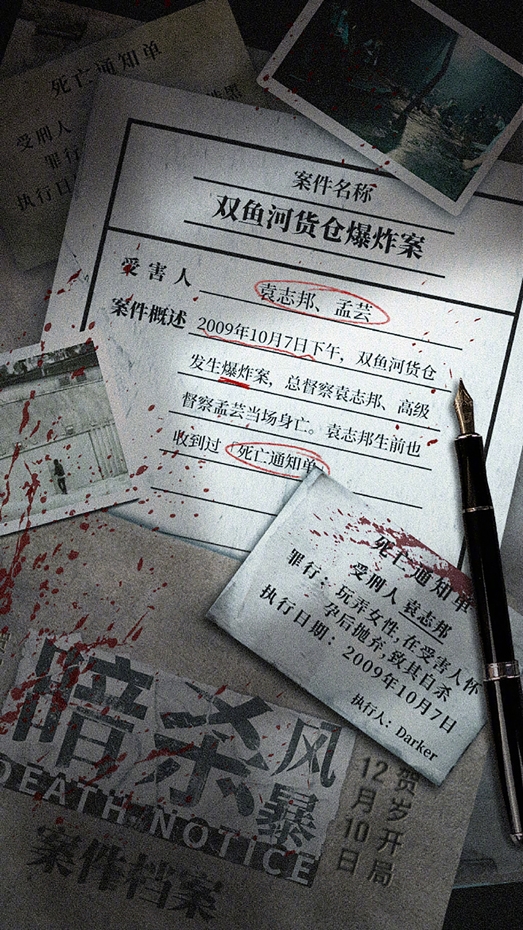 死亡通知单
受刑人
罪行
执行日
案件名称
双鱼河货仓爆炸案
受害人
袁志邦、孟芸
案件概述
2009年10月7日下午，双鱼河货仓
发生爆炸案，总督察袁志邦、高级
督察孟芸当场身亡。袁志邦生前也
收到过“死亡通知单
死亡通知单
受刑人 袁志邦
罪行：玩弄女性，在受害人怀
孕后抛弃 致其自杀
执行日期：2009年10月7日
执行人：Darker
暗杀风暴
DEATH NOTICE
案件档案
贺岁开局
12月10日